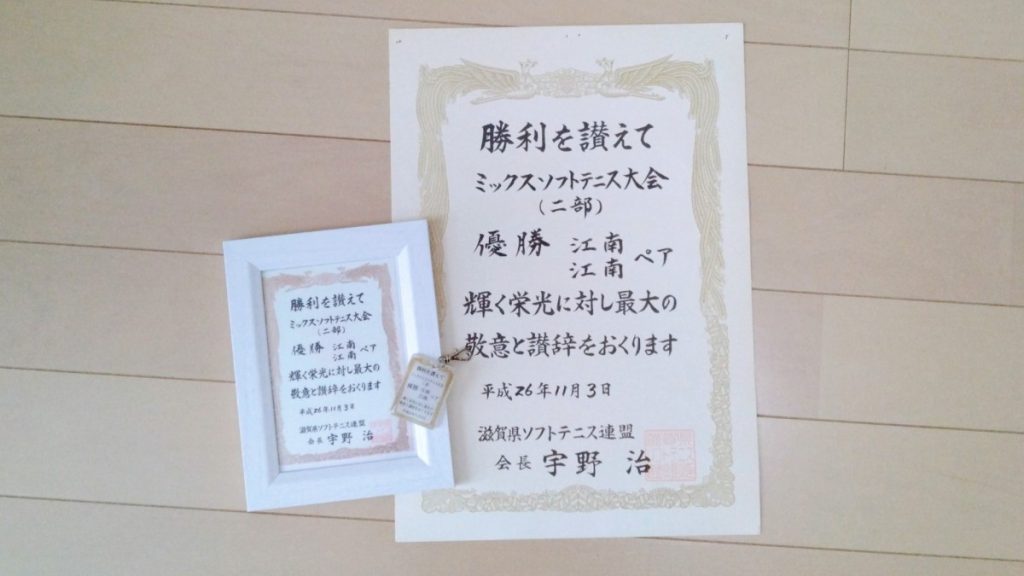 勝利を讃えて
ミックスソフトテニス大会
（二部）
優勝 江南
江南 ペア
輝く栄光に対し最大の
敬意と讃辞をおくります
平成26年11月3日
滋賀県ソフトテニス連盟
会長 宇野 治
勝利を讃えて
ミックスソフトテニス大会
（二部）
優勝 江南
江南 ペア
輝く栄光に対し最大の
敬意と讃辞をおくります
平成26年11月3日
滋賀県ソフトテニス連盟
会長 宇野 治
勝利を讃えて